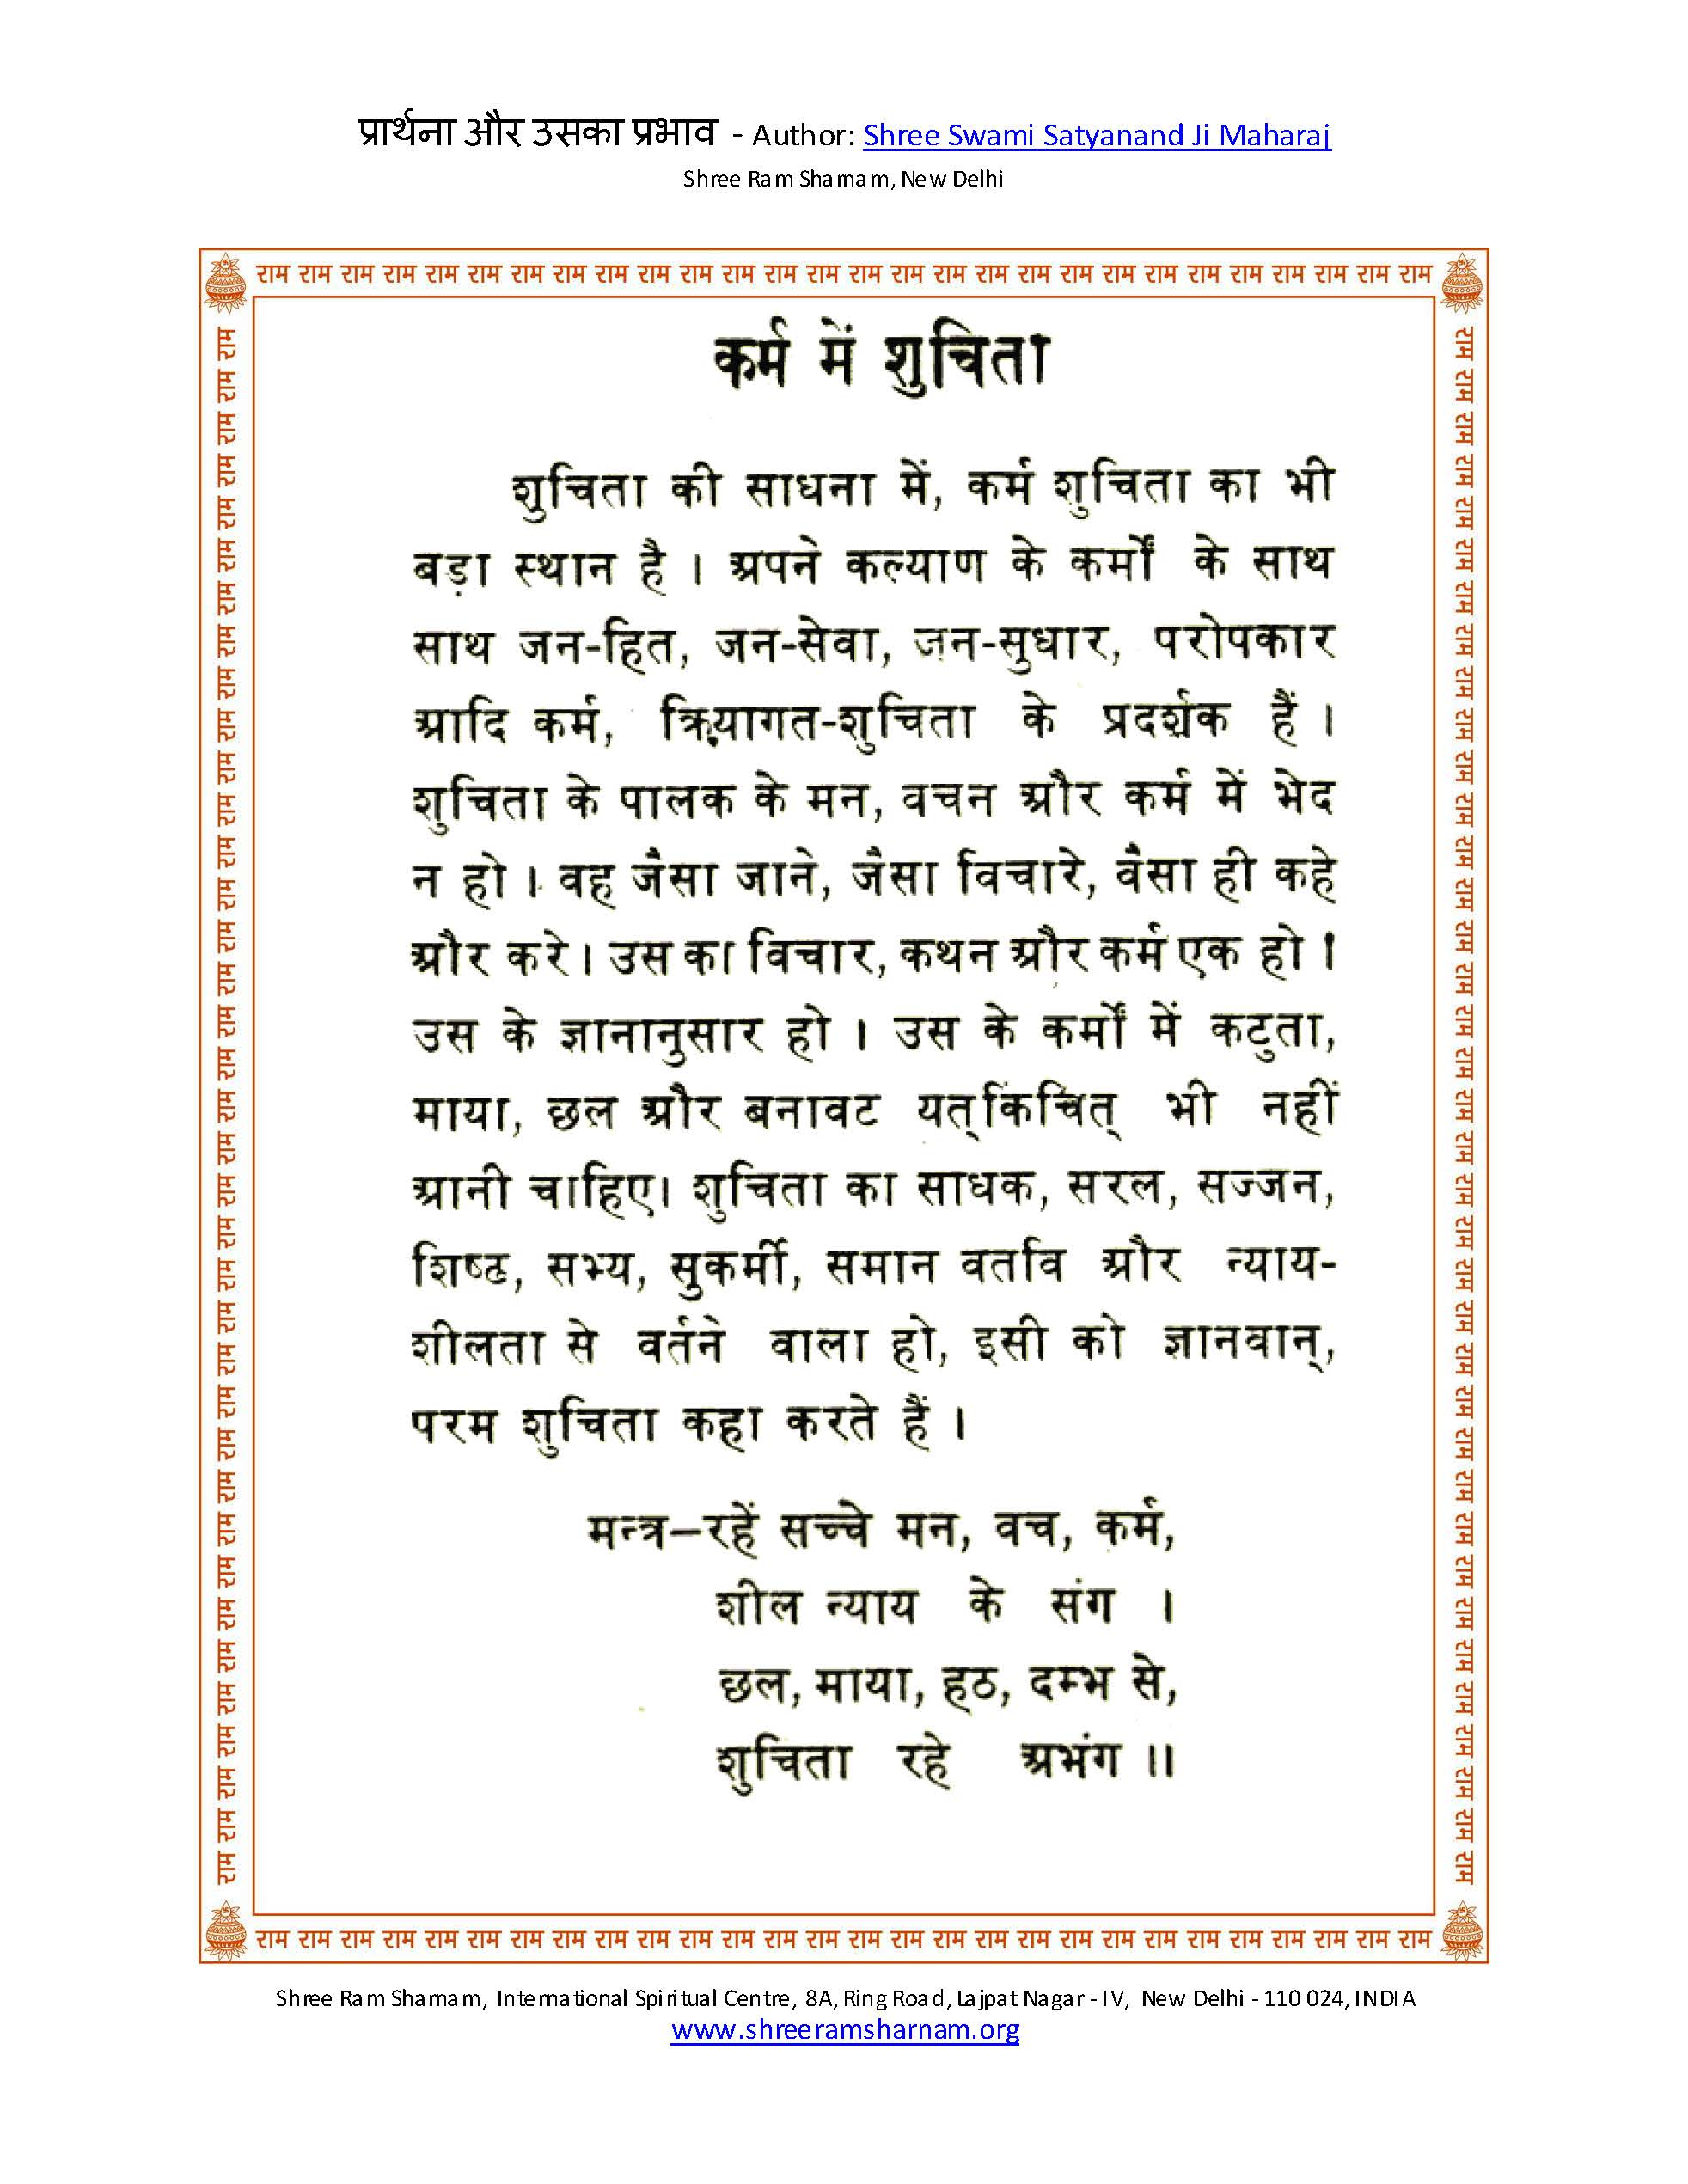 प्रार्थना और उसका प्रभाव - Author: Shree Swami Satyanand Ji Maharaj
Shree Ram Sharnam, New Delhi
राम राम राम राम राम राम राम राम राम राम राम राम राम राम राम राम राम राम राम राम राम राम राम राम राम राम राम राम
कर्म में शुचिता
शुचिता की साधना में, कर्म शुचिता का भी
बड़ा स्थान है । अपने कल्याण के कर्मों के साथ
साथ जन-हित, जन-सेवा, जन-सुधार, परोपकार
आदि कर्म, क्रियागत-शुचिता के प्रदर्शक हैं ।
शुचिता के पालक के मन, वचन और कर्म में भेद
न हो । वह जैसा जाने, जैसा विचारे, वैसा ही कहे
और करे। उस का विचार, कथन और कर्म एक हो ।
उस के ज्ञानानुसार हो । उस के कर्मों में कटुता,
माया, छल और बनावट यत्किंचित् भी नहीं
आनी चाहिए। शुचिता का साधक, सरल, सज्जन,
शिष्ठ, सभ्य, सुकर्मी, समान वर्ताव और न्याय-
शीलता से वर्तने वाला हो, इसी को ज्ञानवान्,
परम शुचिता कहा करते हैं ।
मन्त्र–रहें सच्चे मन, वच, कर्म,
शील न्याय के संग ।
छल, माया, हठ, दम्भ से,
शुचिता रहे अभंग ॥
राम राम राम राम राम राम राम राम राम राम राम राम राम राम राम राम राम राम राम राम राम राम राम राम राम राम राम राम
Shree Ram Sharnam, International Spiritual Centre, 8A, Ring Road, Lajpat Nagar - IV, New Delhi - 110 024, INDIA
www.shreeramsharnam.org